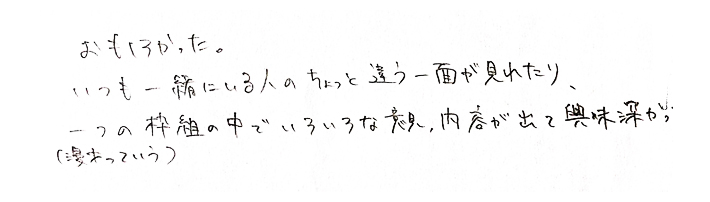 おもしろかった。
いつも一緒にいる人のちょっと違う一面が見れたり、
一つの枠組の中でいろいろな意見、内容が出て興味深かっ
(漫才っていう)